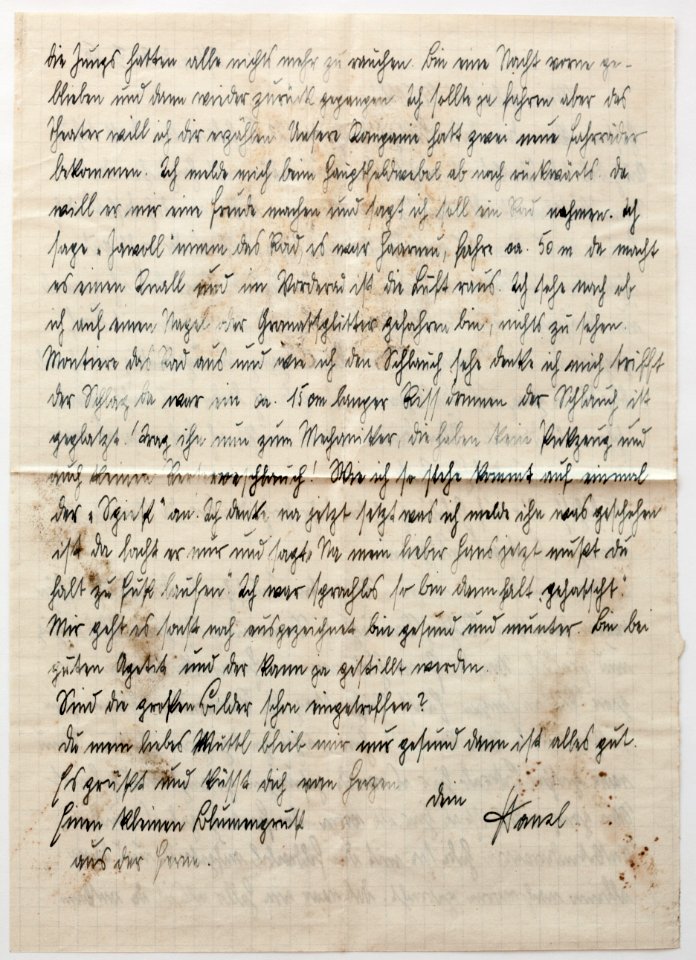 die Jungs hatten alle nichts mehr zu rauchen. Bin eine Nacht vorne ge-
blieben und dann wieder zurück gegangen. Ich sollte ja fahren aber das
Theater will ich dir erzählen. Unsere Kompanie hatt zwei neue Fahrräder
bekommen. Ich melde mich beim Hauptfeldwebel ab nach rückwärts. da
will er mir eine Freude machen und sagt ich soll ein Rad nehmen. Ich
sage „Jawoll" nimm das Rad, es war Haarneu, fahre ca. 50 m da macht
es einen Knall und im Vorderad ist die Luft raus. Ich sehe nach ob
ich auf einen Nagel oder Granatsplitter gefahren bin, nichts zu sehen.
Montiere das Rad aus und wie ich den Schlauch sehe denke ich mich trifft
der Schlag da war ein ca. 15 cm langer Riss drinnen der Schlauch ist
geplatzt! Trag ihn nun zum Mechaniker, die haben kein Pickzeug und
auch keinen Reserveschlauch! Wie ich so stehe kommt auf einmal
der „Spieß" an. Ich denke na jetzt setzt was ich melde ihn was geschehen
ist da lacht er nur und sagt „Na mein lieber Hans jetzt mußt du
halt zu Fuß laufen" Ich war sprachlos so bin dann halt gehatscht."
Mir geht es sonst noch ausgezeichnet bin gesund und munter. Bin bei
guten Apetit und der kann ja gestillt werden.
Sind die großen Bilder schon eingetroffen?
Du mein liebes Muttl bleib mir nur gesund dann ist alles gut.
Es grüßt und küsst dich von Herzen
dein Hansl
Einen kleinen Blumengruß
aus der Ferne.